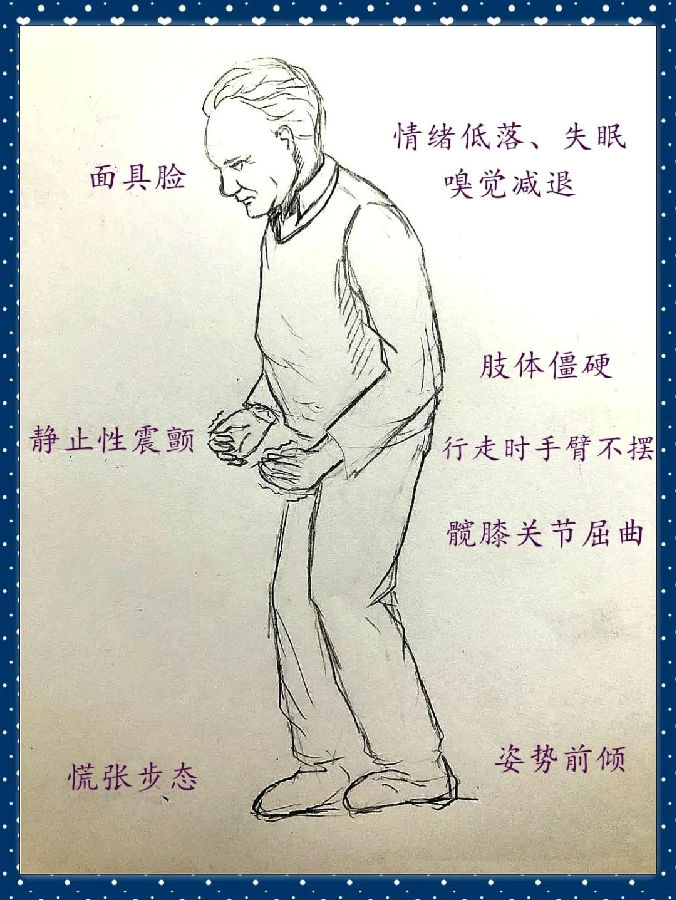 情绪低落、失眠
嗅觉减退
面具脸
肢体僵硬
静止性震颤
行走时手臂不摆
髋膝关节屈曲
慌张步态
姿势前倾